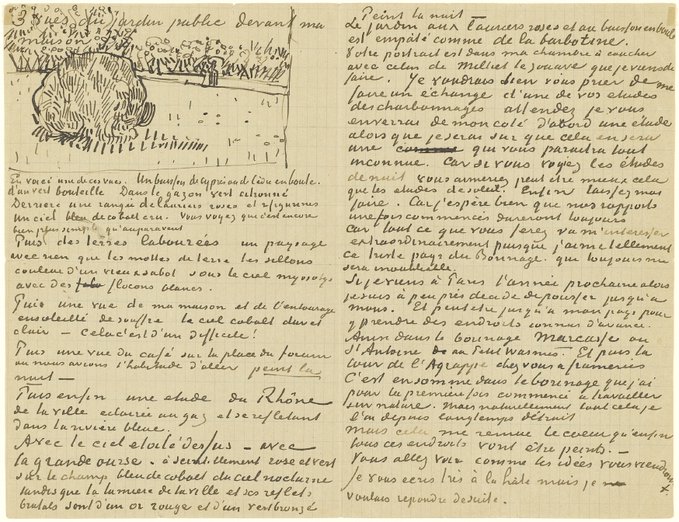 3 vues du jardin public devant ma
maison
En voici une de ces vues. Un buisson de cyprès ou de cèdre en boule.
d'un vert bouteille Dans le gazon vert citronné
Derrière une rangée de lauriers roses et 2 figurines
un ciel bleu de cobalt cru. Vous voyez que c'est encore
bien plus simple qu'auparavant
Puis des terres labourées un paysage
avec rien que les mottes de terre les sillons
couleur d'un vieux sabot sous le ciel myosotys
avec des flocons blancs.
Puis une vue de ma maison et de l'entourage
ensoleillé de souffre le ciel cobalt dur et
clair – Cela c'est d'un difficile!
Puis une vue du café sur la place du forum
où nous avions l'habitude d'aller peint la
nuit –
Puis enfin une étude du Rhône
de la ville éclairée au gaz et se reflétant
dans la rivière bleue.
Avec le ciel étoilé dessus – avec
la grande ourse – à scintillement rose et vert
sur le champ bleu de cobalt du ciel nocturne
tandis que la lumière de la ville et ses reflets
brutals sont d'un or rouge et d'un vert bronzé
Peint la nuit –
Le jardin aux lauriers roses et au buisson en boule
est empâté comme de la barbotine.
Votre portrait est dans ma chambre à coucher
avec celui de Milliet le zouave que je viens de
faire. Je voudrais bien vous prier de me
faire un échange d'une de vos études
des charbonnages attendez je vous
enverrai de mon côté d'abord une étude
alors que je serai sûr que cela en sera
une qui vous paraîtra tout
inconnue. Car si vous voyez les études
de nuit vous aimerez peut être mieux cela
que les études de soleil. Enfin laissez moi
faire. Car j'espère bien que nos rapports
une fois commencés dureront toujours
Car tout ce que vous ferez va m'intéresser
extraordinairement puisque j'aime tellement
ce triste pays du Borinage. qui toujours me
sera inoubliable.
Si je viens à Paris l'année prochaine alors
je suis à peu près décidé de pousser jusqu'à
Mons. Et peut être jusqu'à mon pays pour
y prendre des endroits connus d'avance.
Ainsi dans le borinage Marcasse ou
St Antoine au Petit Wasmes. Et puis la
cour de l'Agrappe chez vous à Frameries
C'est en somme dans le borinage que j'ai
pour la première fois commencé à travailler
sur nature. Mais naturellement tout cela je
l'ai depuis longtemps détruit
Mais cela me remue le coeur qu'enfin
tous ces endroits vont être peints. –
Vous allez voir comme les idées vous viendront
Je vous écris très à la hâte mais je
voulais répondre de suite.